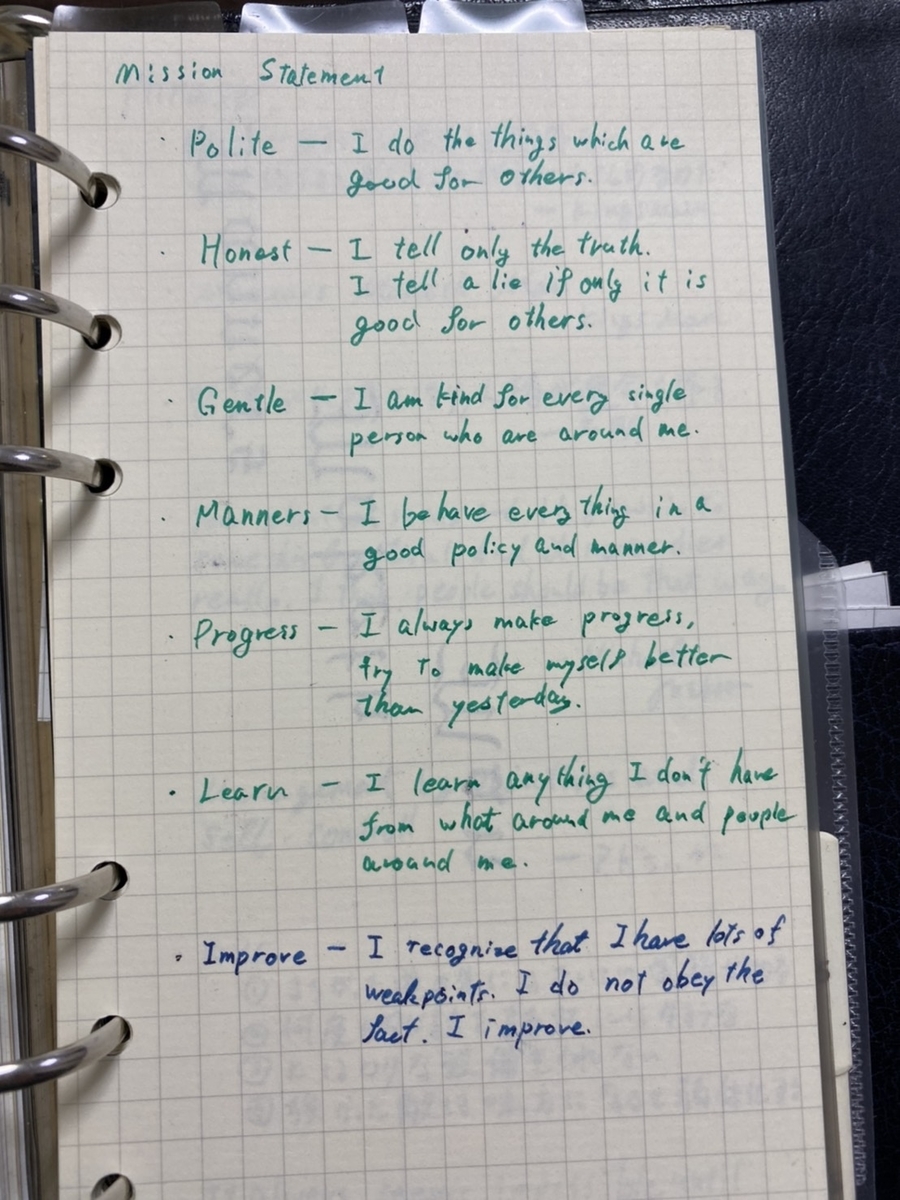 Mission Statement
· Polite — I do the things which are
good for others.
· Honest — I tell only the truth.
I tell a lie if only it is
good for others.
· Gentle — I am kind for every single
person who are around me.
· Manners — I behave every thing in a
good policy and manner.
· Progress — I always make progress,
try to make myself better
than yesterday.
· Learn — I learn anything I don't have
from what around me and people
around me.
· Improve — I recognize that I have lots of
weakpoints. I do not obey the
fact. I improve.